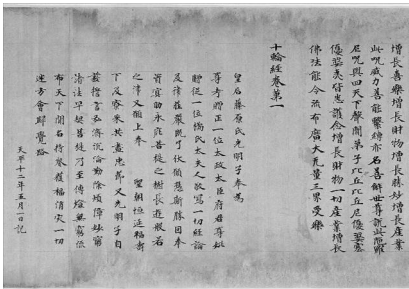 增長喜樂增長財物增長勝妙增長產業
此呪威力善能擊縛亦名善解世尊說此陀羅
尼呪與四天下聲聞弟子比丘比丘尼優婆塞
優婆夷皆悉護念增長財物一切產業增長
佛法能令流布廣大无量三界受樂
十輪經卷第一
皇后藤原氏光明子奉為
尊考贈正一位太政太臣府君尊妣
贈從一位橘氏太夫人敬寫一切經論
及律莊嚴既了伏願憑斯勝因奉
資冥助永庇菩提之樹長遊般若
之津又願上奉 聖朝恒延福壽
下及寮采共盡忠節又光明子自
發誓言弘濟沉淪勤除煩障妙窮
諸法早契菩提乃至傳燈無窮流
布天下聞名持卷獲福消灾一切
迷方會歸覺路
天平十二年五月一日記